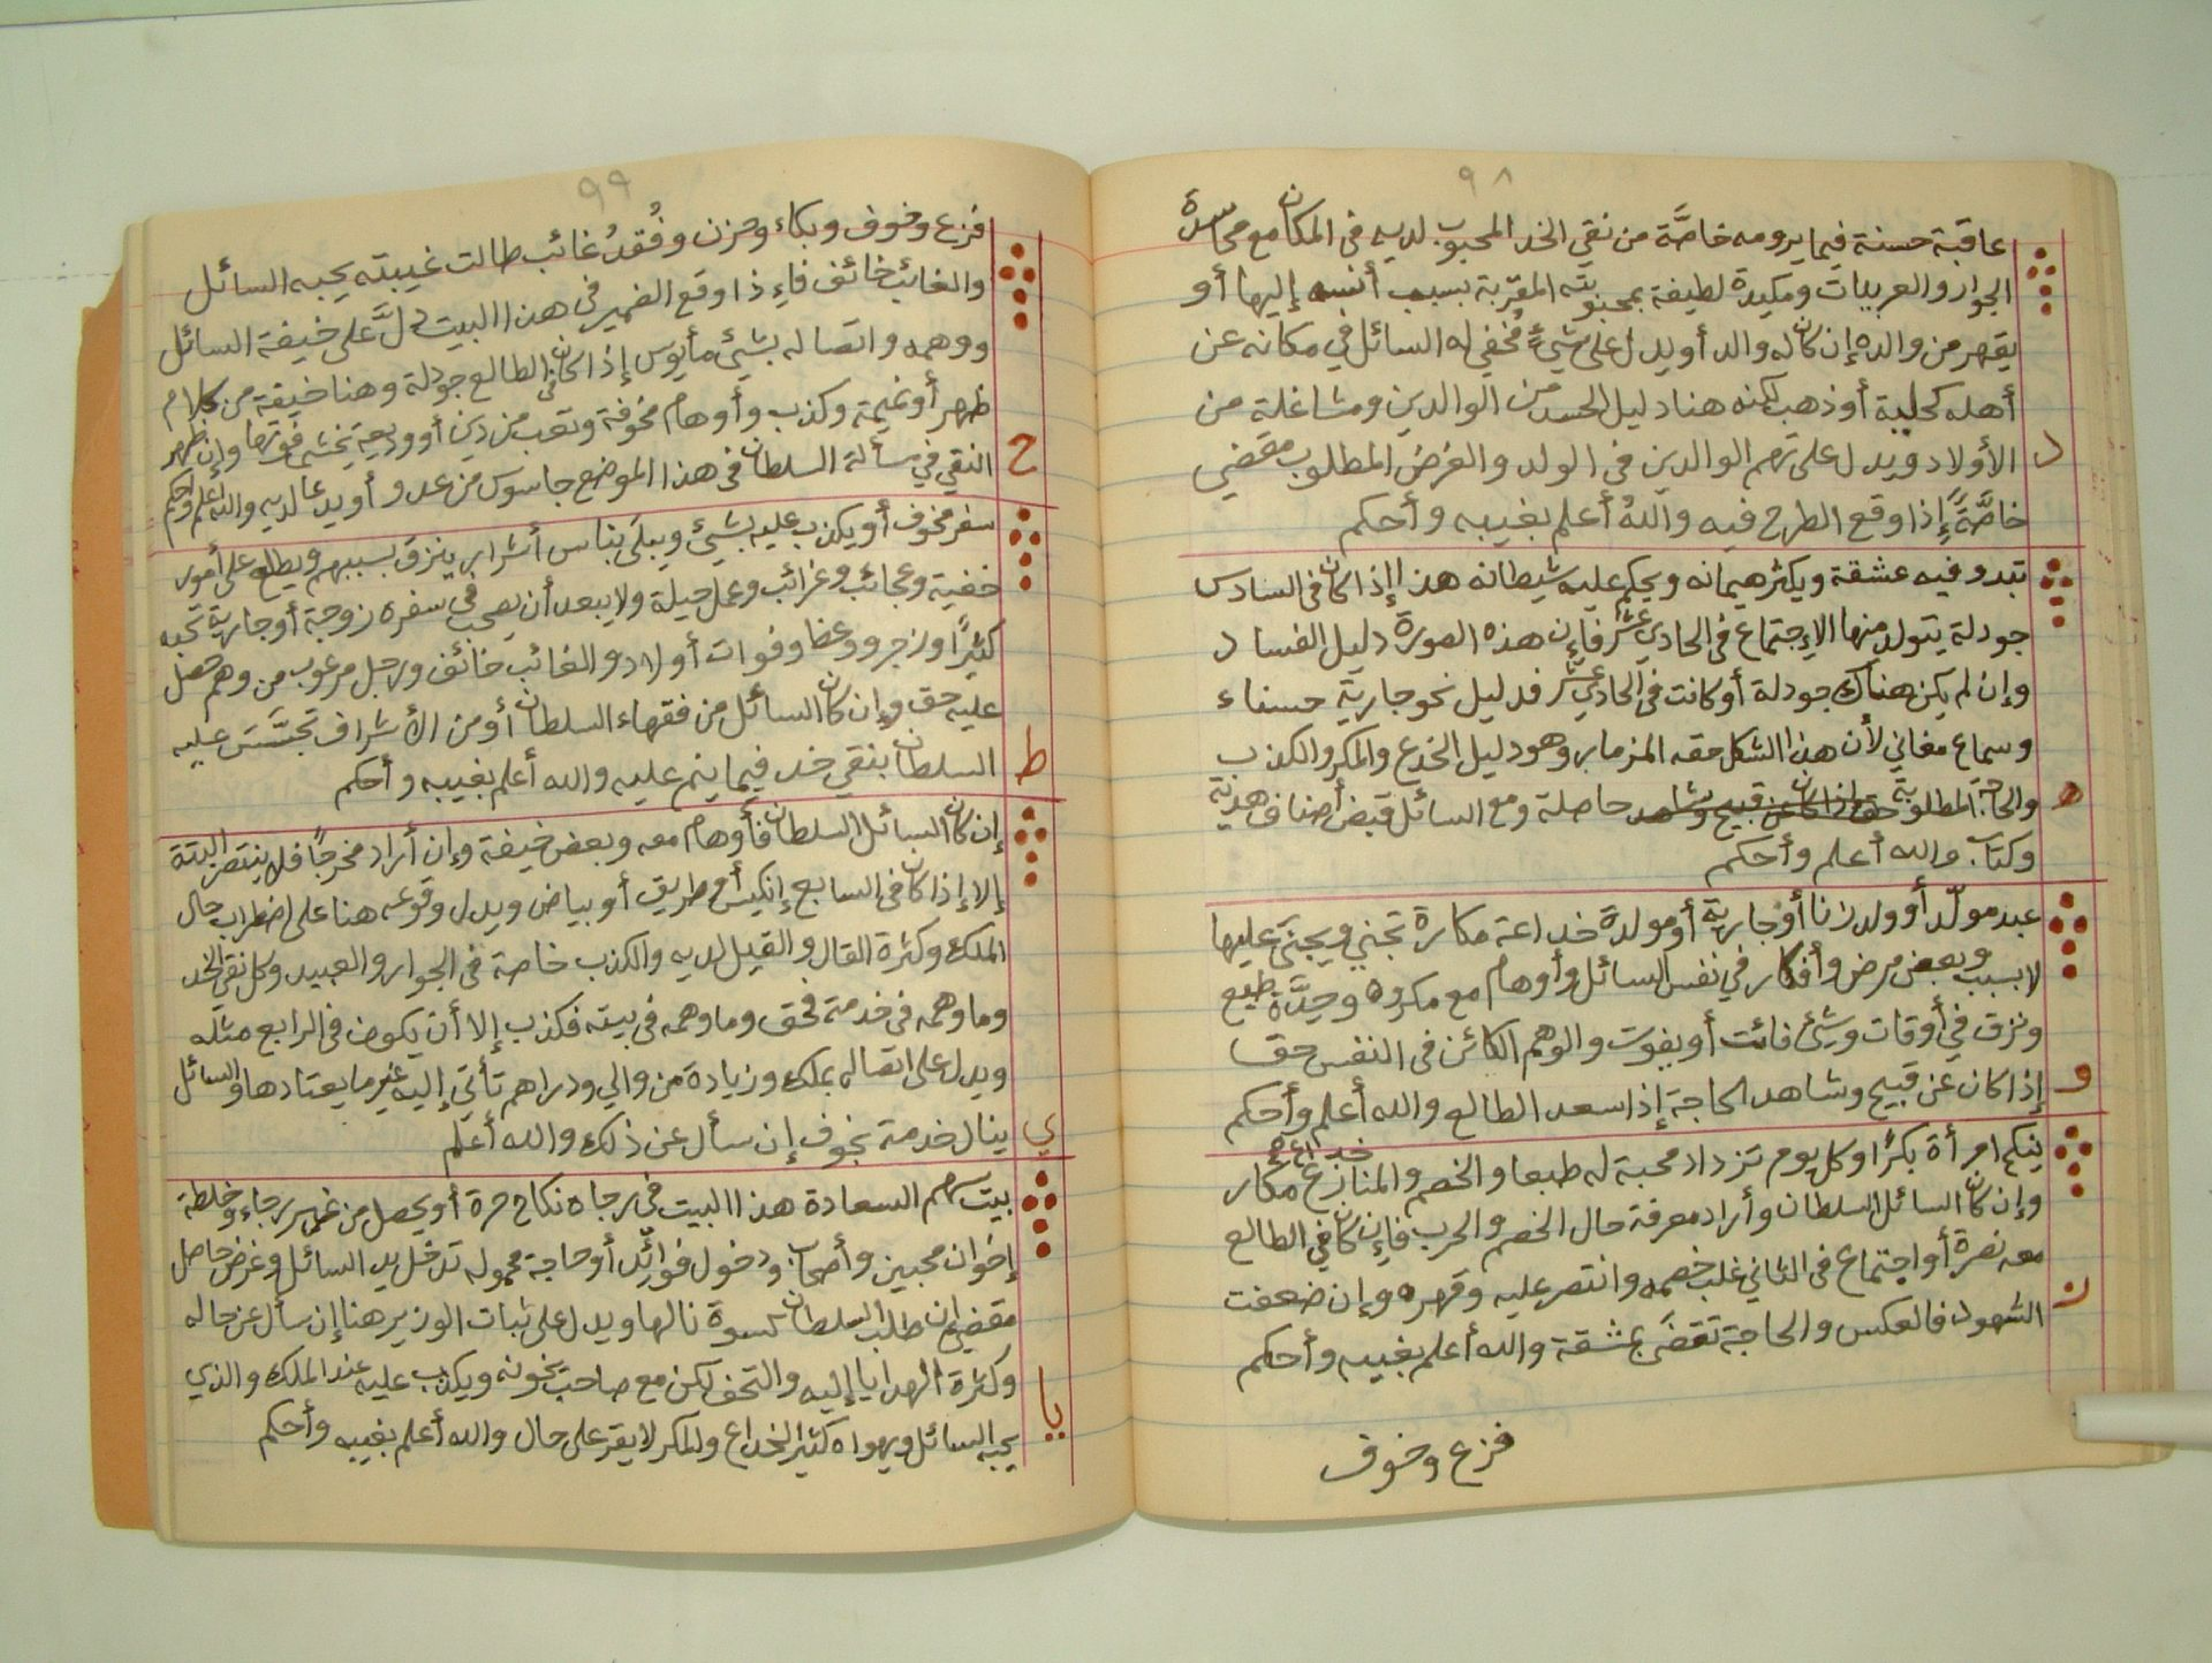 ٩٨
عاقبة حسنة فيما يرومه خاصَّة من نقي الخد المحبوب لديه في المكان مع محاسدة
الجوار والعربيات ومكيدة لطيفة بمحبوبته المقرّبة بسبب أنسه إليها أو
يقهر من والده إن كان له والد أو يدل على شيءٍ مُخفي له السائل في مكانه عن
أهله كحلية أو ذهب لكنه هنا دليل الحسد من الوالدين ومشاغلة من
د
الأولاد ويدل على تهم الوالدين في الولد والغرض المطلوب مقضي
خاصَّةً إذا وقع الطرح فيه واللهُ أعلم بغيبه وأحكم
تبدو فيه عشقة ويكثر هيمانه ويحكم عليه شيطانه هذا إذا كان في السادس
جودلة يتولد منها الإجتماع في الحادي عشر فإن هذه الصورة دليل الفساد
وإن لم يكن هناك جودلة أو كانت في الحادي عشر فدليل نحو جارية حسناء
وسماع مغاني لأن هذا الشكل حقه المزمابر وهو دليل الخدع والمكر والكذب
ه
والحاجة المطلوبة حق إذا كان عن قبيح وشاهد حاصلة ومع السائل قبض أصناف هدية
وكتاب والله أعلم وأحكم
عبد مولّد أو ولد زنا أو جارية أو مولدة خداعة مكارة تجني ويجنى عليها
لا بسبب وبعض مرض وأفكار في نفس السائل وأوهام مع مكروه وحِدَّة طبع
ونزق في أوقات وشيئ فائت أو يفوت والوهم الكائن في النفس حقا
و
إذا كان عن قبيح وشاهد الحاجة إذا سعد الطالع والله أعلم وأحكم
ينكح امرأة بكرًا وكل يوم تزداد محبة له طبعا والخصم والمنازع خداع مكار
وإن كان السائل السلطان وأراد معرفة حال الخصم والحرب فإن كان في الطالع
معه نصرة أو اجتماع في الثاني غلب خصمه وانتصر عليه وقهره وإن ضعفت
ز
الشهود فالعكس والحاجة تقضَى بمشقة والله أعلم بغيبه وأحكم
فزع وخوف
٩٩
فزع وخوف وبكاء وحزن وفُقدُ غائب طالت غيبته يحبه السائل
والغائب خائف فإذا وقع الضمير في هذا البيت دلَّ على خيفة السائل
ووهمه واتصاله بشيئ مأيوس إذا كان في الطالع جودلة وهنا خيفة من كلام
ظهر أو نميمة وكذب وأوهام مخوفة وتعب من دين أو وديعة يخشى فوتها وإن ظهر
ح
النقي في سألة السلطان في هذا الموضع جاسوس من عدو أو يدعا لديه والله أعلم وأحكم
سفر مخوف أو يكذب عليه بشيئ ويبلَى بناس أشرار ينزق بسببهم ويطلع على أمور
خفية وعجائب وغرائب وعمل حيلة ولا يبعد أن يصحب في سفره زوجة أو جارية تحبه
كثيرًا وزجر ووعظ وفوات أولاد والغائب خائف ورجل مرعوب من وهم حصل
عليه حق وإن كان السائل من فقهاء السلطان أو من الأشراف تجسَّسَ عليه
ط
السلطان بنقي خد فيما ينم عليه والله أعلم بغيبه وأحكم
إن كان السائل السلطان فأوهام معه وبعض خيفة وإن أراد مخرجًا فلا ينتصر البتة
إلا إذا كان في السابع إنكيس أو طريق أو بياض ويدل وقوعه هنا على اضطراب حال
الملك وكثرة القال والقيل لديه والكذب خاصة في الجوار والعبيد وكل نقي الخد
وما وهمه في خدمة فحق وما وهمه في بيته فكذب إلا أن يكون في الرابع مثله
ويدل على اتصاله بملك وزيادة من والي ودراهم تأتي إليه غير ما يعتادها والسائل
ي
ينال خدمة بخوف إن سأل عن ذلك والله أعلم
بيت سهم السعادة هذا البيت في رجاه نكاح حرة أو يحصل من غير رجاء وخلطة
إخوان محبين وأصحاب ودخول فوائد أو حاجة محموله تدخل يد السائل وغرض حاصل
مقضي إن طلب السلطان كسوة نالها ويدل على ثبات الوزير هنا إن سأل عن حاله
وكثرة الهدايا إليه والتحف لكن مع صاحب يخونه ويكذب عليه عند الملك والذي
يا
يحبه السائل ويهواه كثير الخداع والمكر لا يقر على حال والله أعلم بغيبه وأحكم